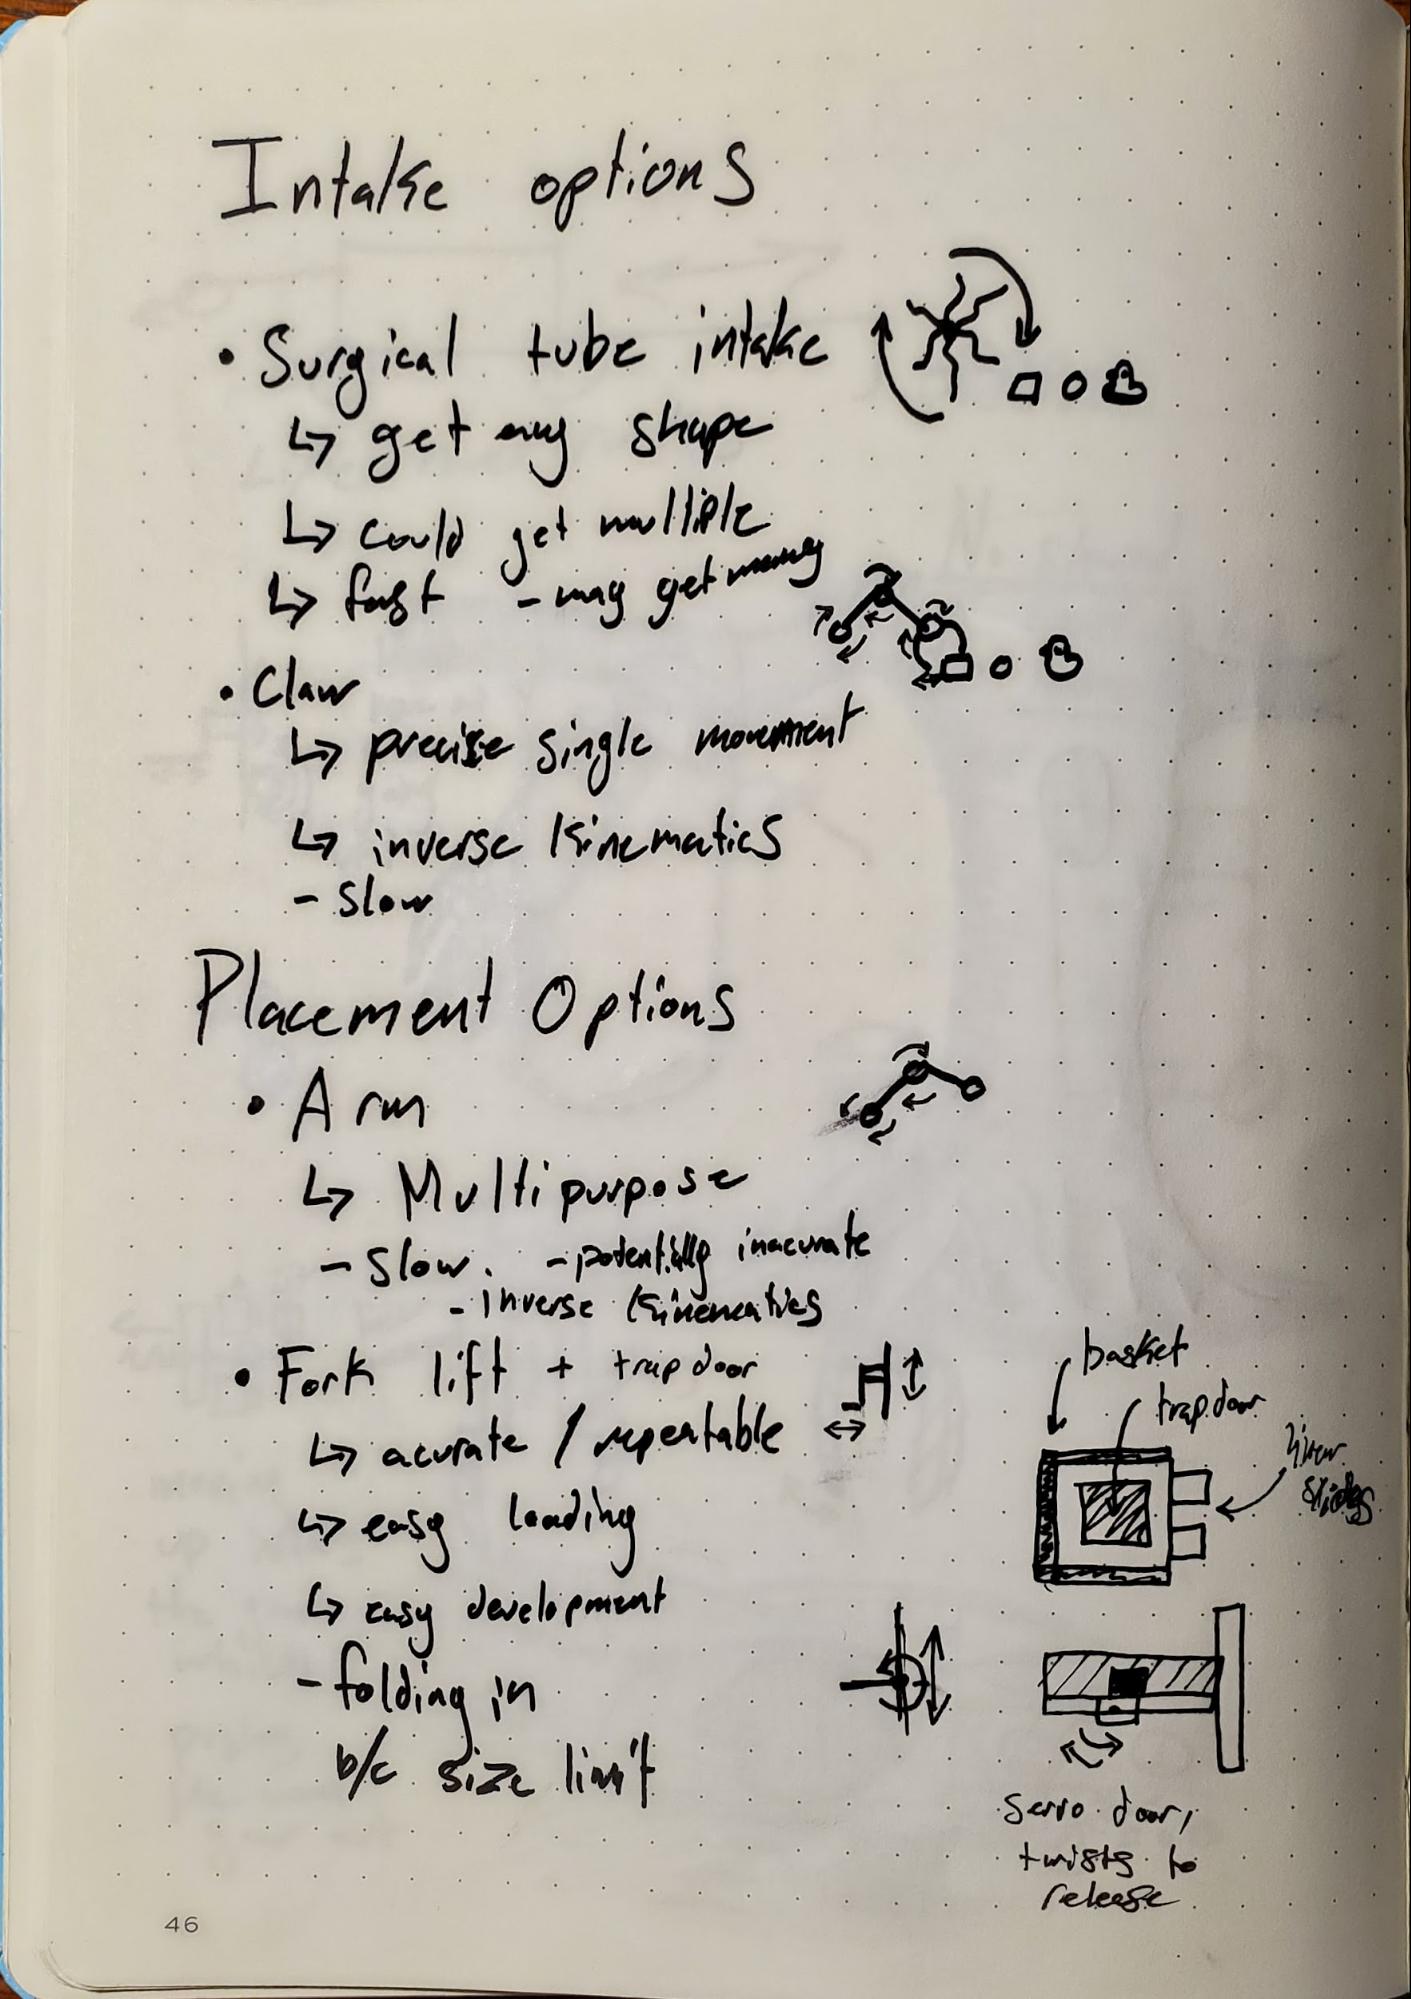 Intake options
• Surgical tube intake
↳ get any shape
↳ could get multiple
↳ fast - may get many
• Claw
↳ precise single movement
↳ inverse kinematics
- Slow
Placement Options
• Arm
↳ Multipurpose
- Slow. - potentially inacurate
- inverse kinematics
• Fork lift + trapdoor
↳ acurate / repeatable
↳ easy loading
↳ easy development
- folding in
b/c size limit
basket
trapdoor
linear
slides
servo door,
twists to
release
46